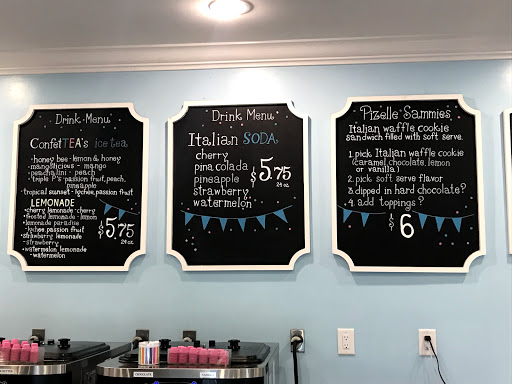 Drink Menu
ConfeTTEA's ice tea
• honey bee - lemon & honey
• mangolicious - mango
• peachalini - peach
• triple P's - passion fruit, peach,
pineapple
• tropical sunset - lychee, passion fruit
LEMONADE
• cherry lemonade - cherry
• frosted lemonade - lemon
• lemonade paradise
- lychee, passion fruit
• strawberry lemonade
- strawberry
• watermelon lemonade
- watermelon
$5.75
24 oz.
Drink Menu
Italian SODA
cherry
pina colada
pineapple
strawberry
watermelon
$5.75
24 oz.
Pizelle Sammies
Italian waffle cookie
sandwich filled with soft serve.
1. pick Italian waffle cookie
(caramel, chocolate, lemon
or vanilla)
2. pick soft serve flavor
3. dipped in hard chocolate?
4. add toppings?
$6